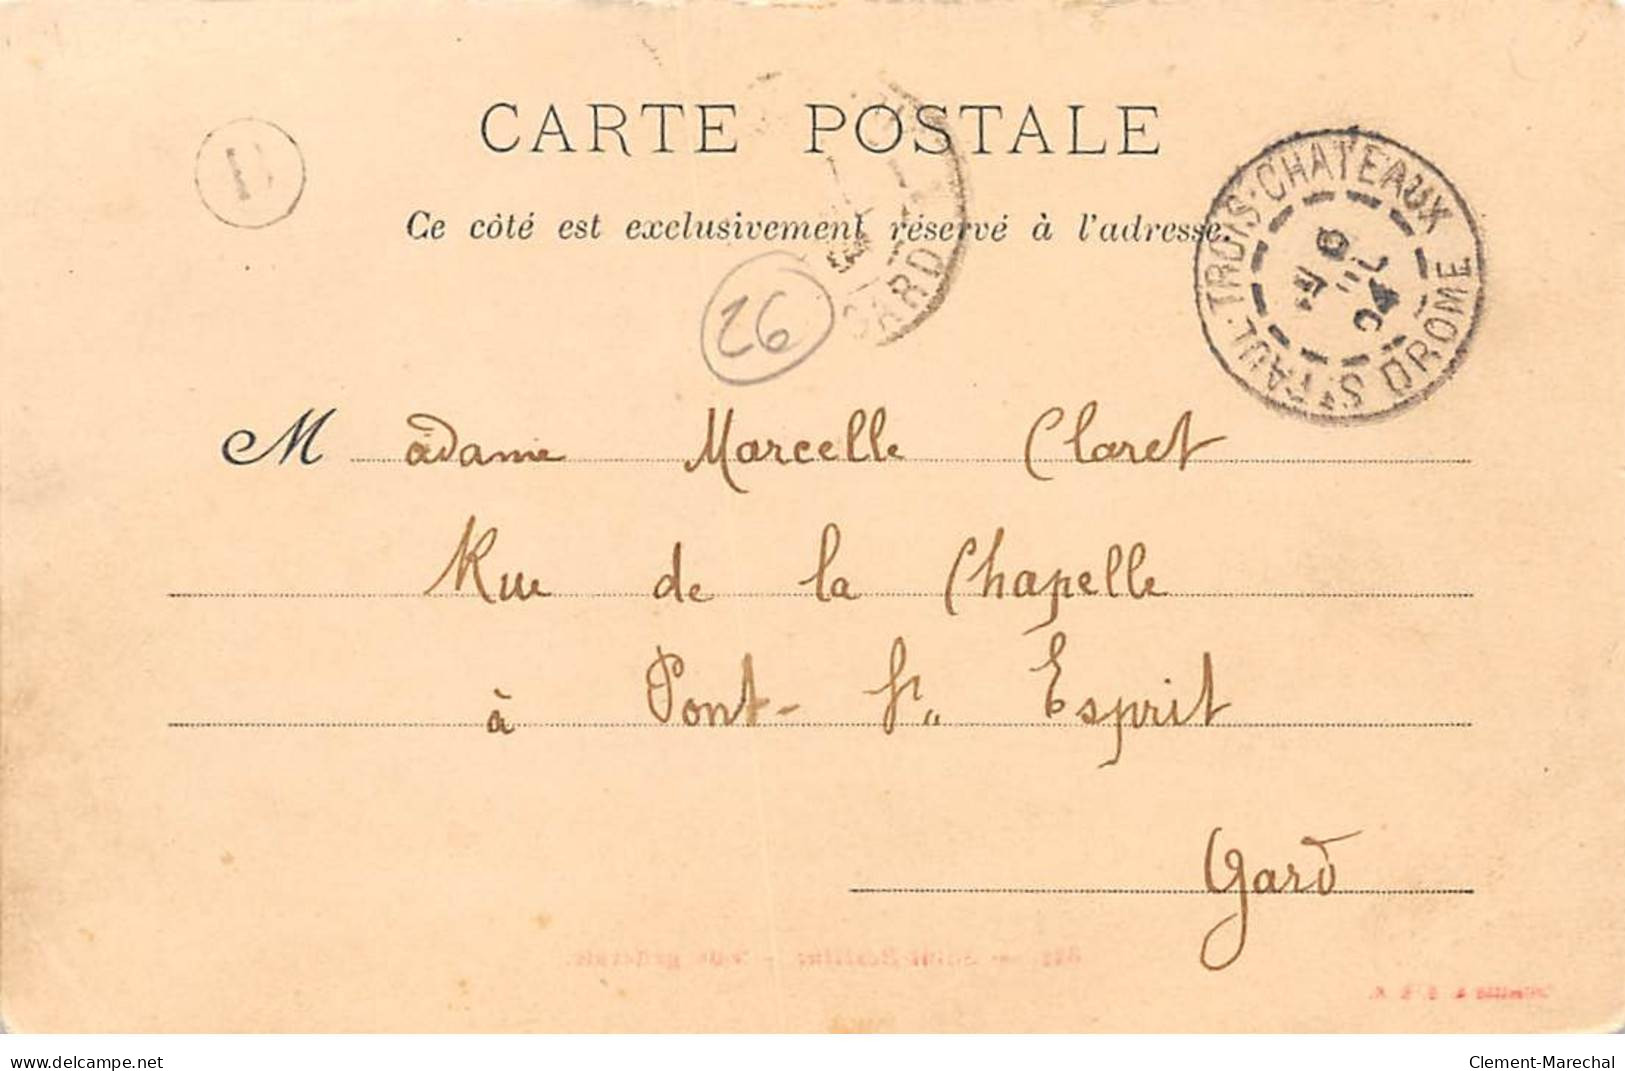 CARTE POSTALE
Ce côté est exclusivement réservé à l'adresse.
ST PAUL-TROIS-CHATEAUX
DROME
GARD
26
Madame Marcelle Claret
Rue de la Chapelle
à Pont-St Esprit
Gard
delcampe.net
Clement-Marechal